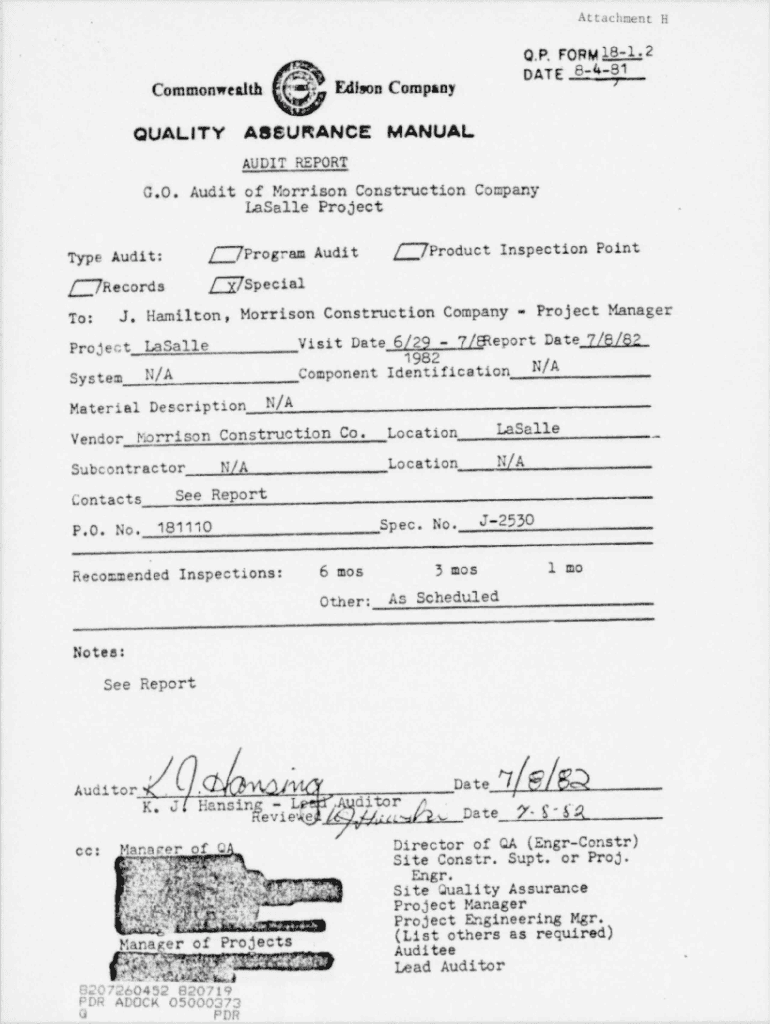 Attachment H
Q.P. FORM 18-1.2
DATE 8-4-81
Commonwealth Edison Company
QUALITY ASSURANCE MANUAL
AUDIT REPORT
G.O. Audit of Morrison Construction Company
LaSalle Project
Type Audit: Program Audit Product Inspection Point
Records X Special
To: J. Hamilton, Morrison Construction Company - Project Manager
Project LaSalle Visit Date 6/29 - 7/8 Report Date 7/8/82
1982
System N/A Component Identification N/A
Material Description N/A
Vendor Morrison Construction Co. Location LaSalle
Subcontractor N/A Location N/A
Contacts See Report
P.O. No. 181110 Spec. No. J-2530
Recommended Inspections: 6 mos 3 mos 1 mo
Other: As Scheduled
Notes:
See Report
Auditor K J Hansing Date 7/8/82
K. J. Hansing - Lead Auditor
Reviewed Date 7-8-82
cc: Manager of QA
Manager of Projects
Director of QA (Engr-Constr)
Site Constr. Supt. or Proj.
Engr.
Site Quality Assurance
Project Manager
Project Engineering Mgr.
(List others as required)
Auditee
Lead Auditor
8207260452 820719
PDR ADOCK 05000373
G PDR